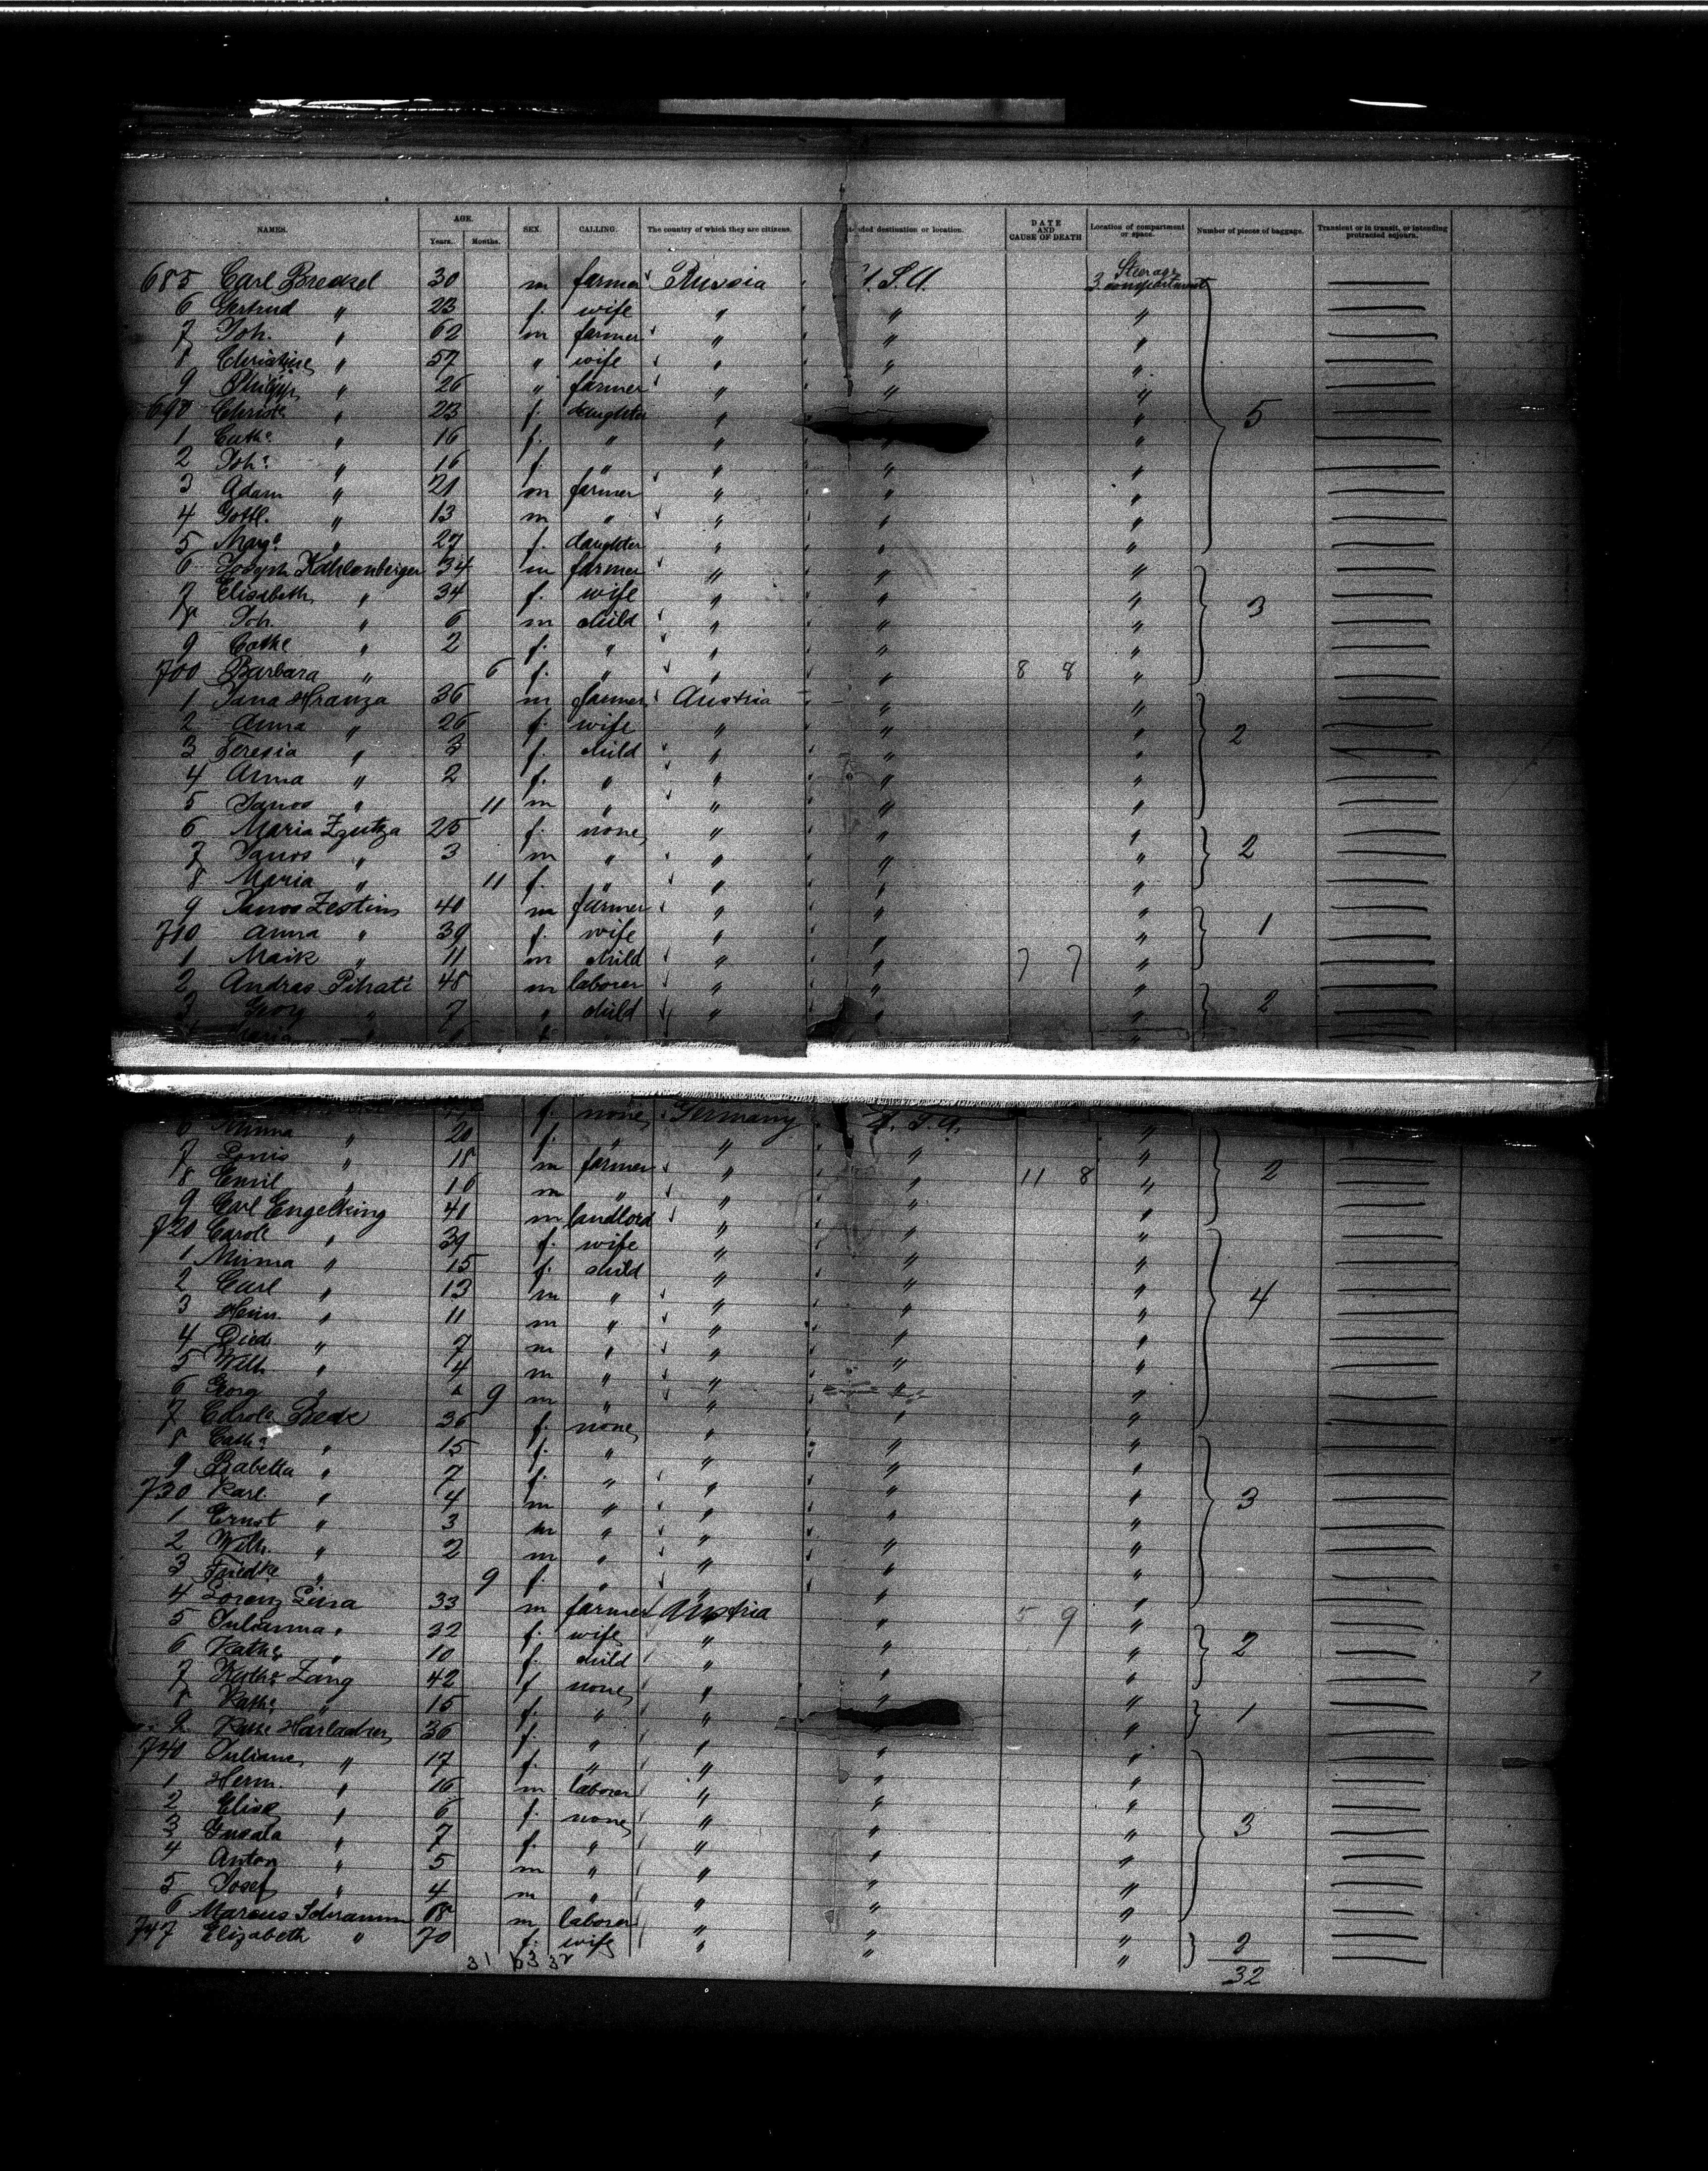 NAMES. AGE. Years. Months. SEX. CALLING. The country of which they are citizens. destination or location. DATE AND CAUSE OF DEATH Location of compartment or space. Number of pieces of baggage. Transient or in transit, or intending protracted sojourn.
685 Carl 30 m farmer Russia U.S.A. Steerage 3 compartment
6 Gertrud " 23 f. wife " " "
7 Joh. " 62 m farmer " " "
8 Christine " 57 " wife " " "
9 Philipp " 26 " farmer " " "
690 Christe " 23 f. daughter " " 5
1 Cathe " 16 f. " " " "
2 Johe " 16 f. " " " "
3 Adam " 21 m farmer " " "
4 Gottl. " 13 m " " " "
5 Marge " 27 f. daughter " " "
6 Joseph Kahlenberger 34 m farmer " " "
7 Elisabeth " 34 f. wife " " " 3
8 Joh. " 6 m child " " "
9 Cathe " 2 f. " " " "
700 Barbara " 6 f. " " " 8 8 "
1 Jana Hranza 36 m farmer Austria " "
2 Anna " 26 f. wife " " " 2
3 Teresia " 3 f. child " " "
4 Anna " 2 f. " " " "
5 Janos " 11 m " " " "
6 Maria 25 f. none " " "
7 Janos " 3 m " " " " 2
8 Maria " 11 f. " " " "
9 Janos Zestins 40 m farmer " " "
710 Anna " 39 f. wife " " " 1
1 Maik " 11 m child " " 7 7 "
2 Andras 48 m laborer " " "
3 Georg " 7 " child " " " 2
f. none Germany U.S.A.
6 Minna " 20 f. " " " "
7 Louis " 18 m farmer " " " 2
8 Emil " 16 m " " " 11 8 "
9 Carl Engelking 41 m landlord " " "
720 Carole " 39 f. wife " " "
1 Minna " 15 f. child " " "
2 Carl " 13 m " " " "
3 Heinr. " 11 m " " " " 4
4 Died. " 7 m " " " "
5 Wilh. " 4 m " " " "
6 Georg " 9 m " " "
7 Carole 36 f. none " " "
8 Cathe " 15 f. " " " "
9 Babetta " 7 f. " " " "
730 Karl " 4 m " " " " 3
1 Ernst " 3 m " " " "
2 Wilh. " 2 m " " " "
3 Friedke " 9 f. " " " "
4 Lorenz 33 m farmer Austria " 5 9 "
5 Julianna " 32 f. wife " " "
6 Kathe " 10 f. child " " " 2
7 Kathe Zang 42 f none " " "
8 Kathe " 15 f. " " " " 1
9 Kathe 36 f. " " " "
740 Juliane " 17 f. " " " "
1 Herm. " 16 m laborer " " "
2 Elise " 6 f. none " " "
3 " 7 f. " " " " 3
4 Anton " 5 m " " " "
5 Josef " 4 m " " " "
6 Marcus Schramm 68 m laborer " " "
747 Elizabeth " 70 f. wife " " " 2
31 63 32 32